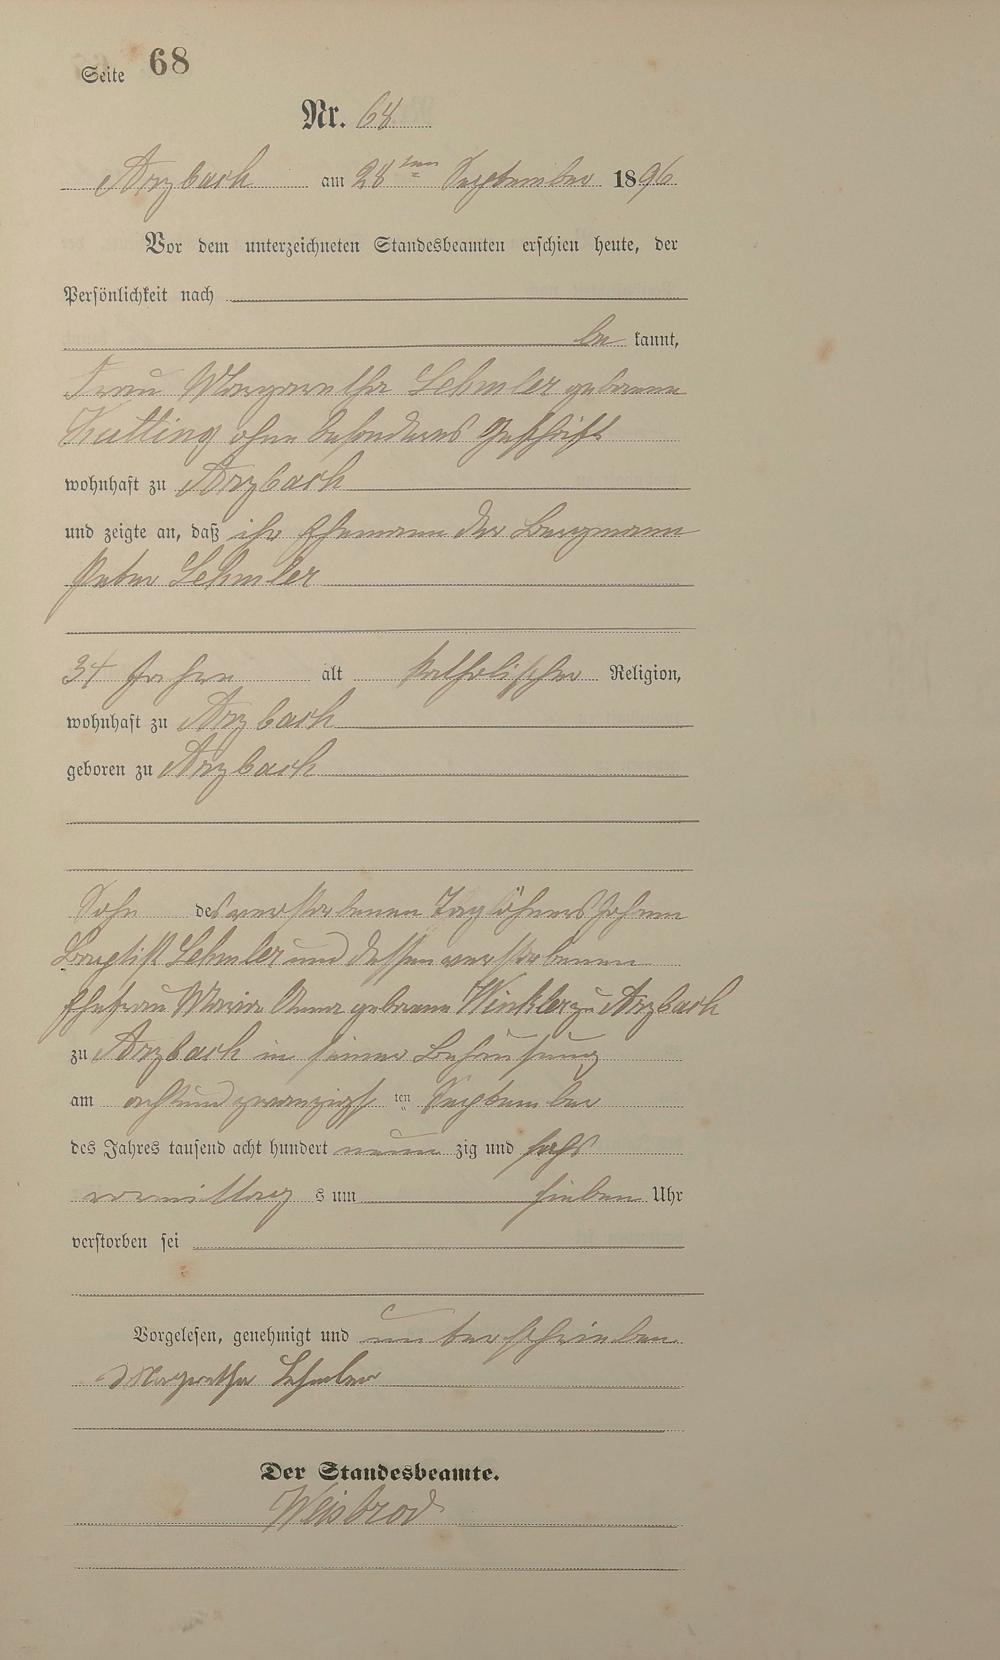 Seite 68
Nr. 68
Arzbach am 28ten September 1896
Vor dem unterzeichneten Standesbeamten erschien heute, der
Persönlichkeit nach
be kannt,
Frau Margaretha Lehmler geborene
Kutting ohne besonderes Geschäft
wohnhaft zu Arzbach
und zeigte an, daß ihr Ehemann der Bergmann
Peter Lehmler
34 Jahre alt katholischer Religion,
wohnhaft zu Arzbach
geboren zu Arzbach
Sohn des verstorbenen Taglöhners Johann
Baptist Lehmler und dessen verstorbenen
Ehefrau Maria Anna geborene Winkler zu Arzbach
zu Arzbach in seiner Behausung
am achtundzwanzigst ten September
des Jahres tausend acht hundert neun zig und sechs
vormittag s um sieben Uhr
verstorben sei
Vorgelesen, genehmigt und unterschrieben
Margretha Lehmler
Der Standesbeamte.
Weisbrod